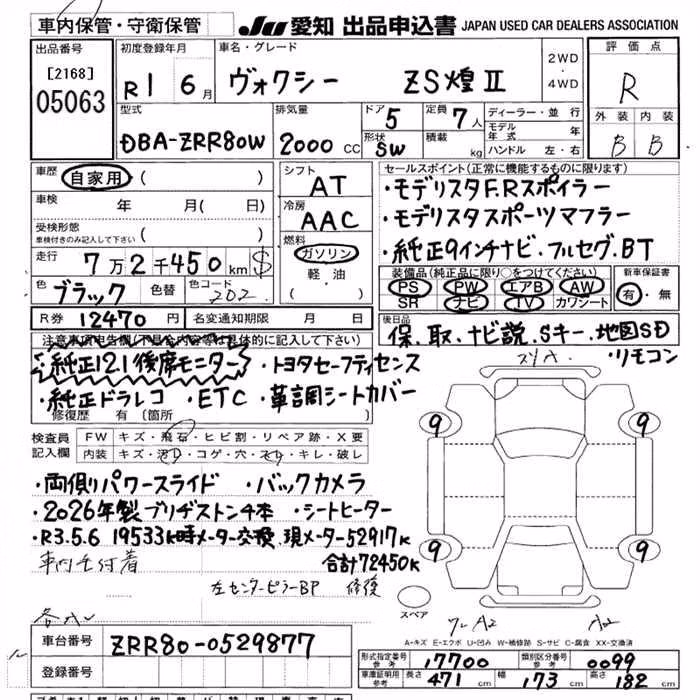 車内保管・守衛保管 JU 愛知 出品申込書 JAPAN USED CAR DEALERS ASSOCIATION
出品番号 初度登録年月 車名・グレード 2WD・4WD 評価点
[2168] 05063 R1 6月 ヴォクシー ZS煌Ⅱ R
型式 排気量 ドア 5 定員 7人 ディーラー・並行 外装 内装
DBA-ZRR80W 2000 CC 形状 SW 積載 kg モデル年式 年 B B
ハンドル 左・右
車歴 自家用 ( ) シフト AT セールスポイント(正常に機能するものに限ります)
車検 年 月( 日) 冷房 AAC ・モデリスタF.Rスポイラー
受検形態 車検付きのみ記入して下さい ( ) 燃料 ・モデリスタスポーツマフラー
走行 7万2千450km $ ガソリン ・純正9インチナビ・フルセグ.BT
色 ブラック 色替 色コード 202 軽油 ( ) 装備品(純正品に限り○をつけてください) 新車保証書
PS PW エアB AW 有・無
SR ナビ TV カワシート
R券 12470円 名変通知期限 月 日 後日品 保.取.ナビ説.Sキー.地図SD
注意事項申告欄(不具合内容等は具体的に記入して下さい) ・リモコン
・純正12.1後席モニター ・トヨタセーフティセンス
・純正ドラレコ ・ETC ・革調シートカバー
修復歴 有 (箇所 )
検査員記入欄 FW キズ・飛石・ヒビ割・リペア跡・X要
内装 キズ・汚れ・コゲ・穴・スレ・キレ・破レ
・両側パワースライド ・バックカメラ
・2026年製ブリヂストン4本 ・シートヒーター
・R3.5.6 19533k時メーター交換.現メーター52917k
合計72450k
左センターピラーBP 修復
9 9
9 9
スペア
A2 A2
A-キズ E-エクボ U-凹み W-補修跡 S-サビ C-腐食 XX-交換済
車台番号 ZRR80-0529877
登録番号
型式指定番号 参考 17700 類別区分番号 参考 0099
車庫証明用 参考 長さ 471 cm 幅 173 cm 高さ 182 cm